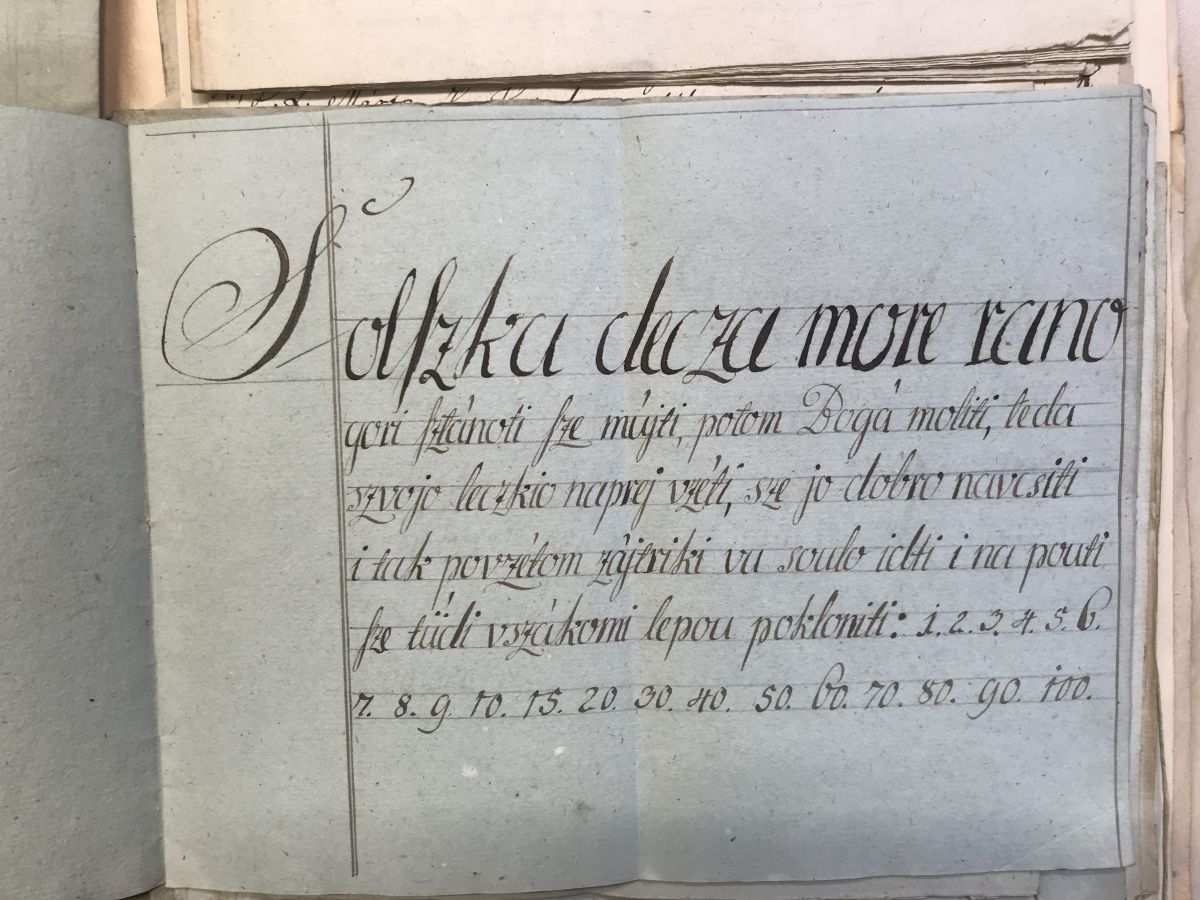 Solszka decza more rano
gori sztánoti sze műjti, potom Bogá moliti, teda
szvojo leczkio naprej vzéti, sze jo dobro navcsiti
i tak povzétom zájtriki vu soulo idti i na pouti
sze tüdi vszákomi lepou pokloniti: 1. 2. 3. 4. 5. 6.
7. 8. 9. 10. 15. 20. 30. 40. 50. 60. 70. 80. 90. 100.